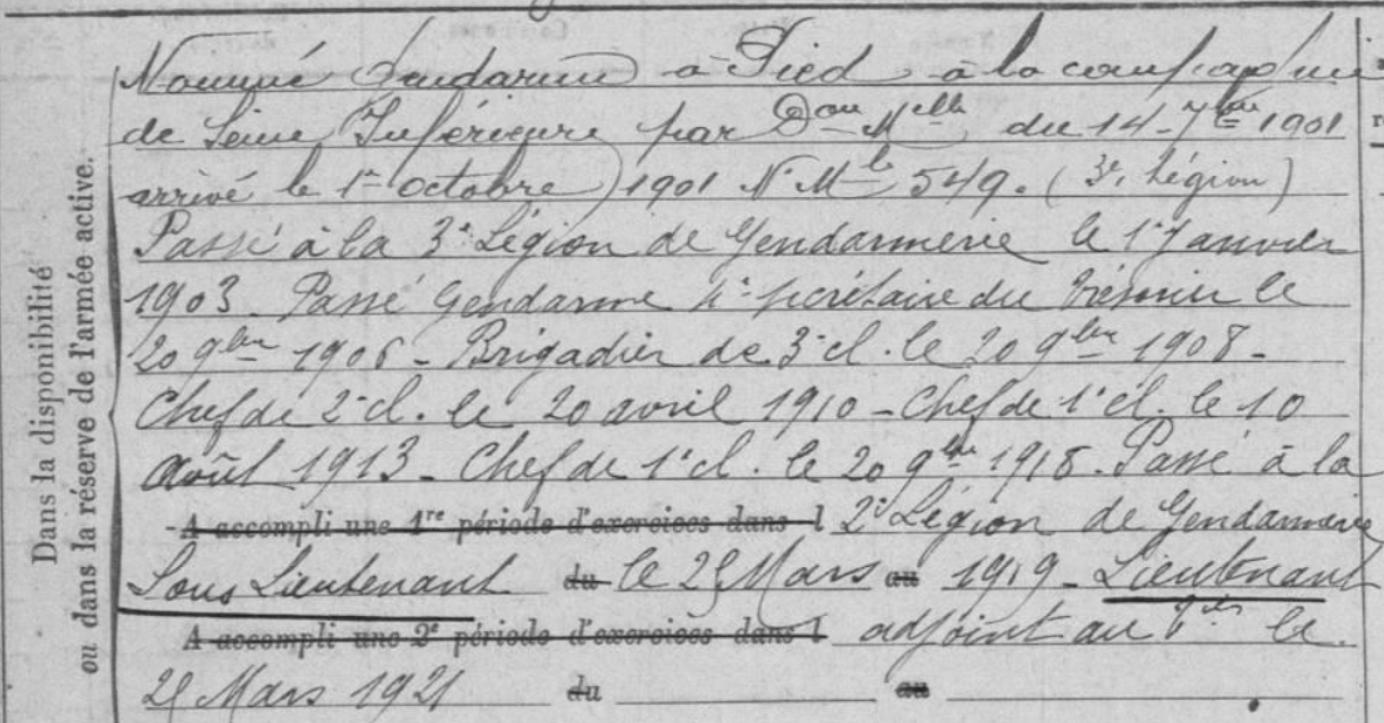 Dans la disponibilité
ou dans la réserve de l'armée active.
Nommé Gendarme à Pied à la compagnie
de Seine Inférieure par Don Melle du 14 7bre 1901
arrivé le 1er octobre 1901 N° Mle 549. (3e Légion)
Passé à la 3e Légion de Gendarmerie le 1er Janvier
1903. Passé Gendarme secrétaire du Trésorier le
20 9bre 1906 - Brigadier de 3e cl. le 20 9bre 1908 -
Chef de 2e cl. le 20 avril 1910 - Chef de 1e cl. le 10
Août 1913 - Chef de 1e cl. le 20 9bre 1918. Passé à la
A accompli une 1re période d'exercices dans l 2e Légion de Gendarmerie
Sous Lieutenant du le 25 Mars au 1919 - Lieutenant
A accompli une 2e période d'exercices dans l adjoint au le
25 Mars 1921 du au